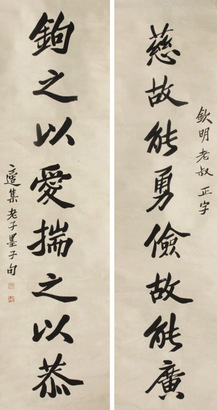 欽明老叔正字
慈故能勇儉故能廣
鉤之以愛揣之以恭
集老子墨子句